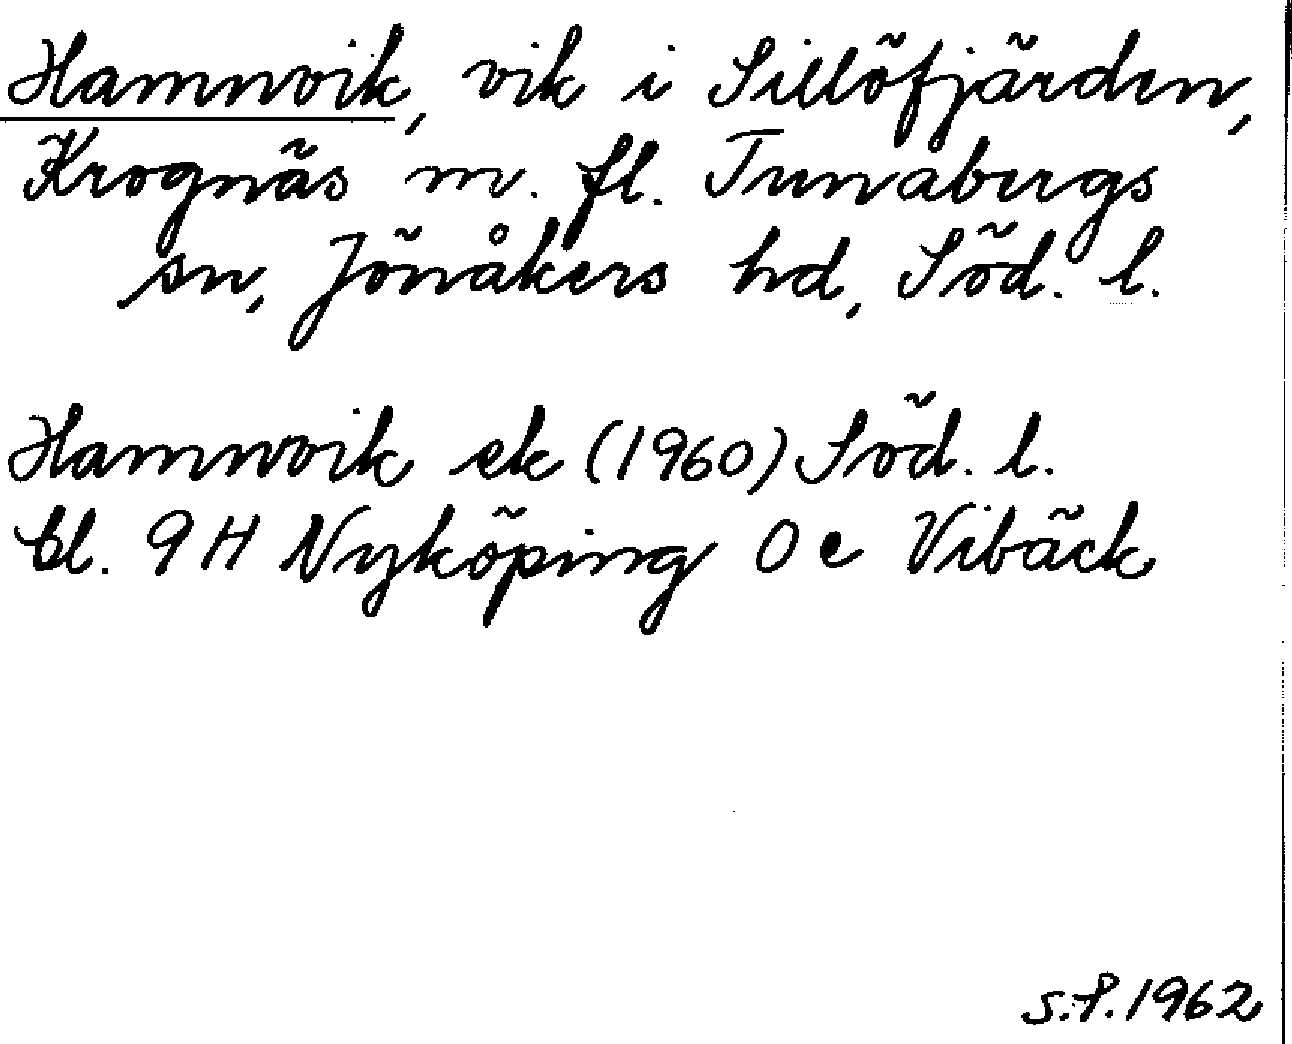 Hamnvik, vik i Sillöfjärden,
Krognäs m. fl. Tunabergs
sn, Jönåkers hd, Söd. l.
Hamnvik ek (1960) Söd. l.
bl. 9H Nyköping 0e Vibäck
S.P. 1962